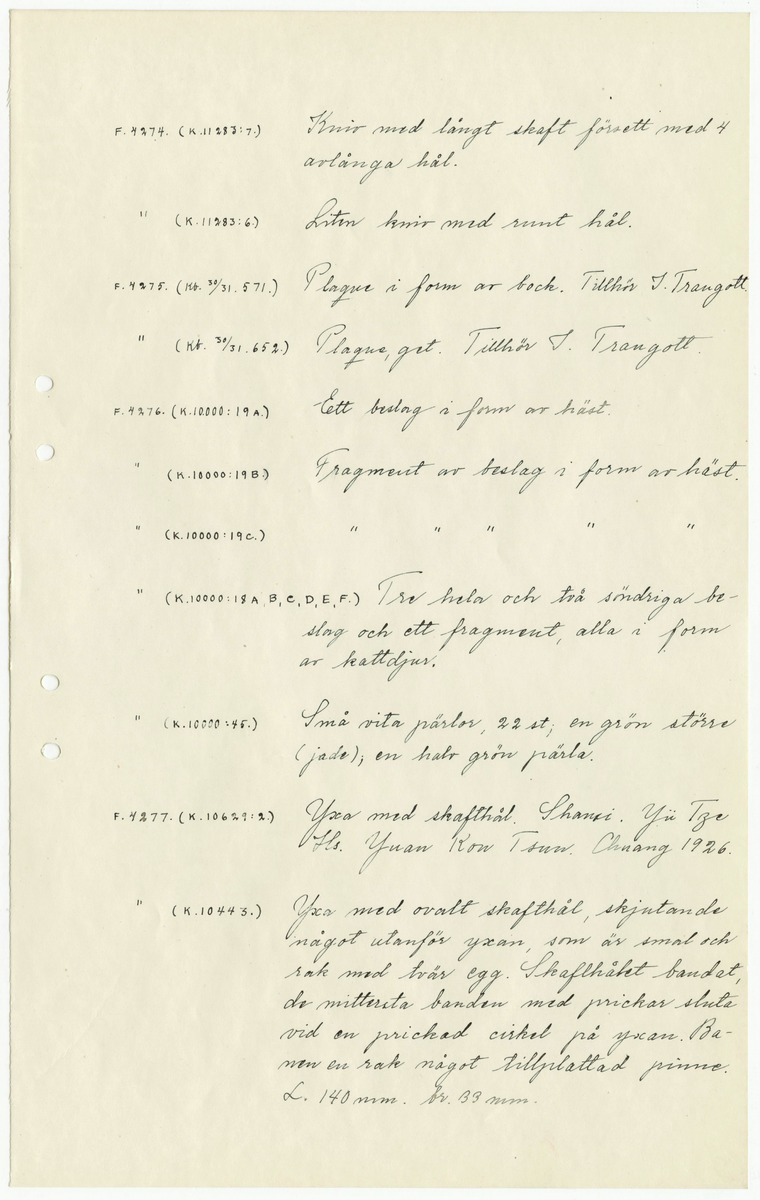 F. 4274. (K.11283:7.) Kniv med långt skaft försett med 4
avlånga hål.
" (K.11283:6.) Liten kniv med runt hål.
F. 4275. (Kb. 30/31. 571.) Plaque i form av bock. Tillhör I. Traugott.
" (Kb. 30/31. 652.) Plaque, get. Tillhör I. Traugott.
F. 4276. (K.10000:19A.) Ett beslag i form av häst.
" (K.10000:19B.) Fragment av beslag i form av häst.
" (K.10000:19C.) " " " " "
" (K.10000:18A, B, C, D, E, F.) Tre hela och två söndriga be-
slag och ett fragment, alla i form
av kattdjur.
" (K.10000:45.) Små vita pärlor, 22 st; en grön större
(jade); en halv grön pärla.
F. 4277. (K.10629:2.) Yxa med skafthål. Shansi. Yü Tze
Hs. Yuan Kou Tsun. Chuang 1926.
" (K.10443.) Yxa med ovalt skafthål, skjutande
något utanför yxan, som är smal och
rak med tvär egg. Skafthålet bandat,
de mittersta banden med prickar sluta
vid en prickad cirkel på yxan. Ba-
nen en rak något tillplattad pinne.
L. 140 mm. br. 33 mm.